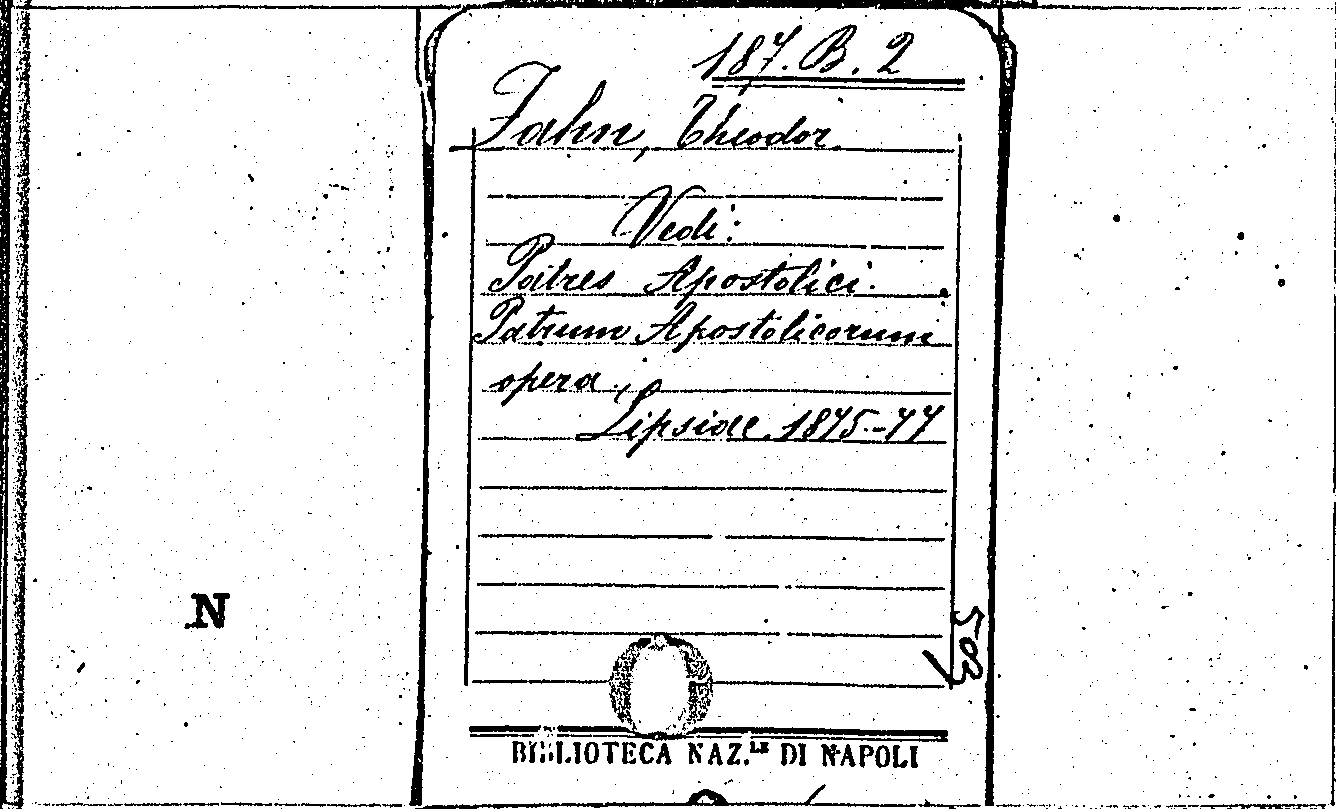 187. B. 2
Zahn, Theodor.
Vedi:
Patres Apostolici.
Patrum Apostolicorum
opera,
Lipsiae 1875-77
N
BIBLIOTECA NAZ.LE DI NAPOLI